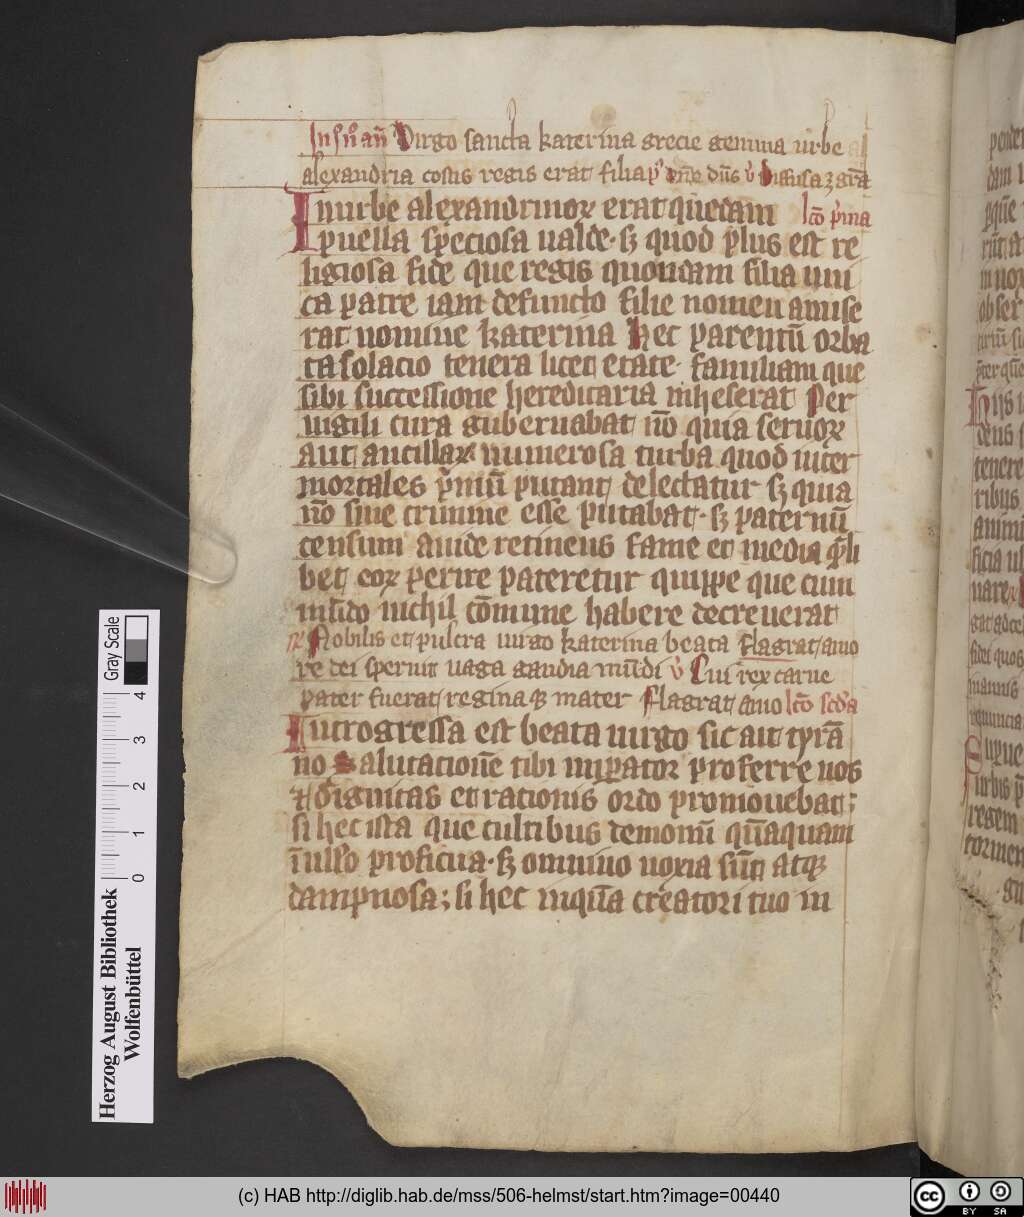 In sūo añ Virgo sancta katerina grecie gemma urbe al
alexandria costis regis erat filia pͬ dūs v̓ Diffusa ⁊ grā
In urbe alexandrinoꝝ erat quedam lcō pͥma
puella speciosa ualde · sꝫ quod plus est re
ligiosa fide que regis quondam filia uni
ca patre iam defuncto filie nomen amise
rat nomine katerina Hec parentū orba
ta solacio tenera licet etate · familiam que
sibi successione hereditaria inheserat Per
uigili cura gubernabat nō quia seruoꝝ
aut ancillaꝝ numerosa turba quod inter
mortales pͥmū putant delectatur sꝫ quia
nō sine crimine esse putabat · sꝫ paternū
censum auide retinens fame et inedia qͣli
bet eoꝝ perire pateretur quippe que cum
mūdo nichil cōmune habere decreuerat
℟ Nobilis et pulcra uirgo katerina beata flagrat amo
re dei spernit uaga gaudia mūdi v̓ Cui rex carne
pater fuerat regina qꝫ mater flagrat amo lcō scd̓a
Introgressa est beata uirgo sic ait tyrā
no Salutacionē tibi imꝑator proferre nos
⁊ dignitas et rationis ordo promouebat ;
si hec ista que cultibus demonū quāquam
ī nullo proficua · sꝫ omnino noxia sūt atqꝫ
dampnosa ; si hec inquā creatori tuo in
Gray Scale
4 3 2 1 0
Herzog August Bibliothek
Wolfenbüttel
(c) HAB http://diglib.hab.de/mss/506-helmst/start.htm?image=00440
cc BY SA